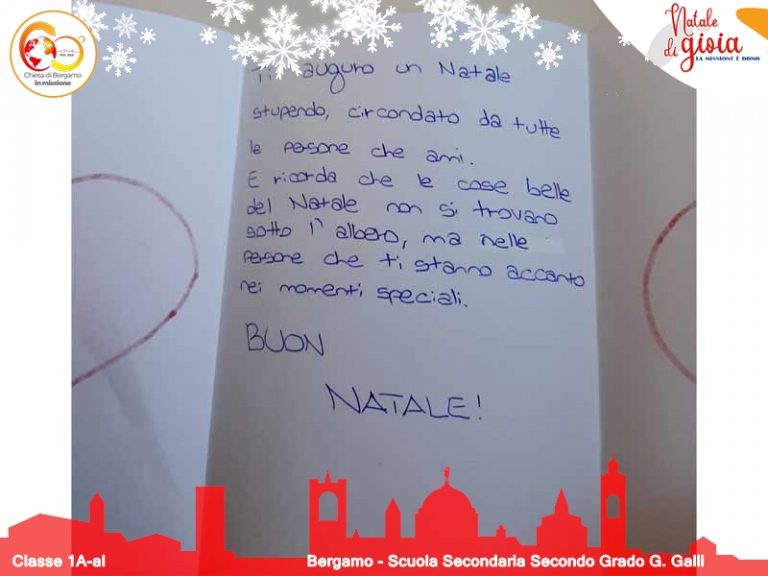 Chiesa di Bergamo
in missione
Natale
di gioia
LA MISSIONE È DONO
Ti auguro un Natale
stupendo, circondato da tutte
le persone che ami.
E ricorda che le cose belle
del Natale non si trovano
sotto l'albero, ma nelle
persone che ti stanno accanto
nei momenti speciali.
BUON
NATALE!
Classe 1A-al
Bergamo - Scuola Secondaria Secondo Grado G. Galli